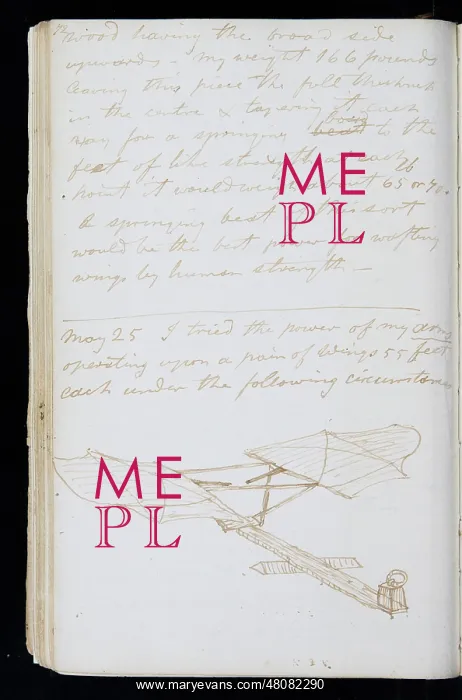 wood having the broad side
upwards - my weight 166 pounds
leaving this piece the full thickness
in the centre & tapering it each
way for a springing body to the
feet of like strength at each
point it would weigh about 65 or 70 lb.
A springing beat of this sort
would be the best power for wafting
wings by human strength. —
May 25 I tried the power of my arms
operating upon a pair of wings 55 feet
each under the following circumstances
ME
PL
ME
PL
www.maryevans.com/48082290